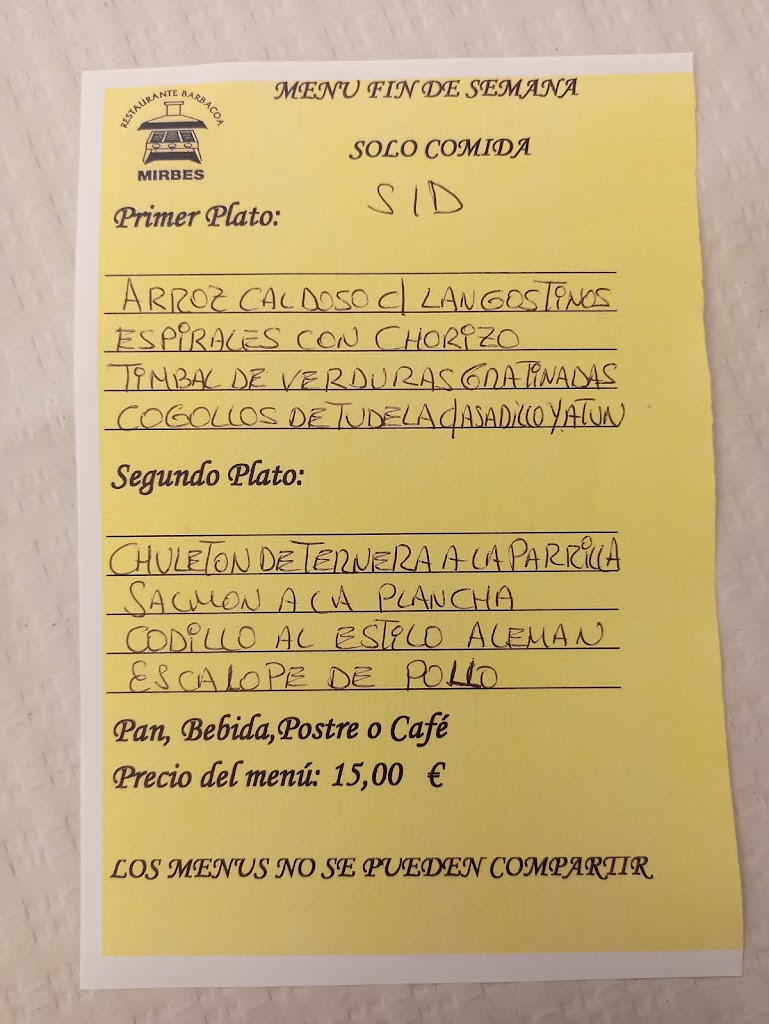 RESTAURANTE BARBACOA
MIRBES
MENU FIN DE SEMANA
SOLO COMIDA
SID
Primer Plato:
ARROZ CALDOSO C/ LANGOSTINOS
ESPIRALES CON CHORIZO
TIMBAL DE VERDURAS GRATINADAS
COGOLLOS DE TUDELA C/ASADILLO Y ATUN
Segundo Plato:
CHULETON DE TERNERA A LA PARRILLA
SALMON A LA PLANCHA
CODILLO AL ESTILO ALEMAN
ESCALOPE DE POLLO
Pan, Bebida,Postre o Café
Precio del menú: 15,00 €
LOS MENUS NO SE PUEDEN COMPARTIR